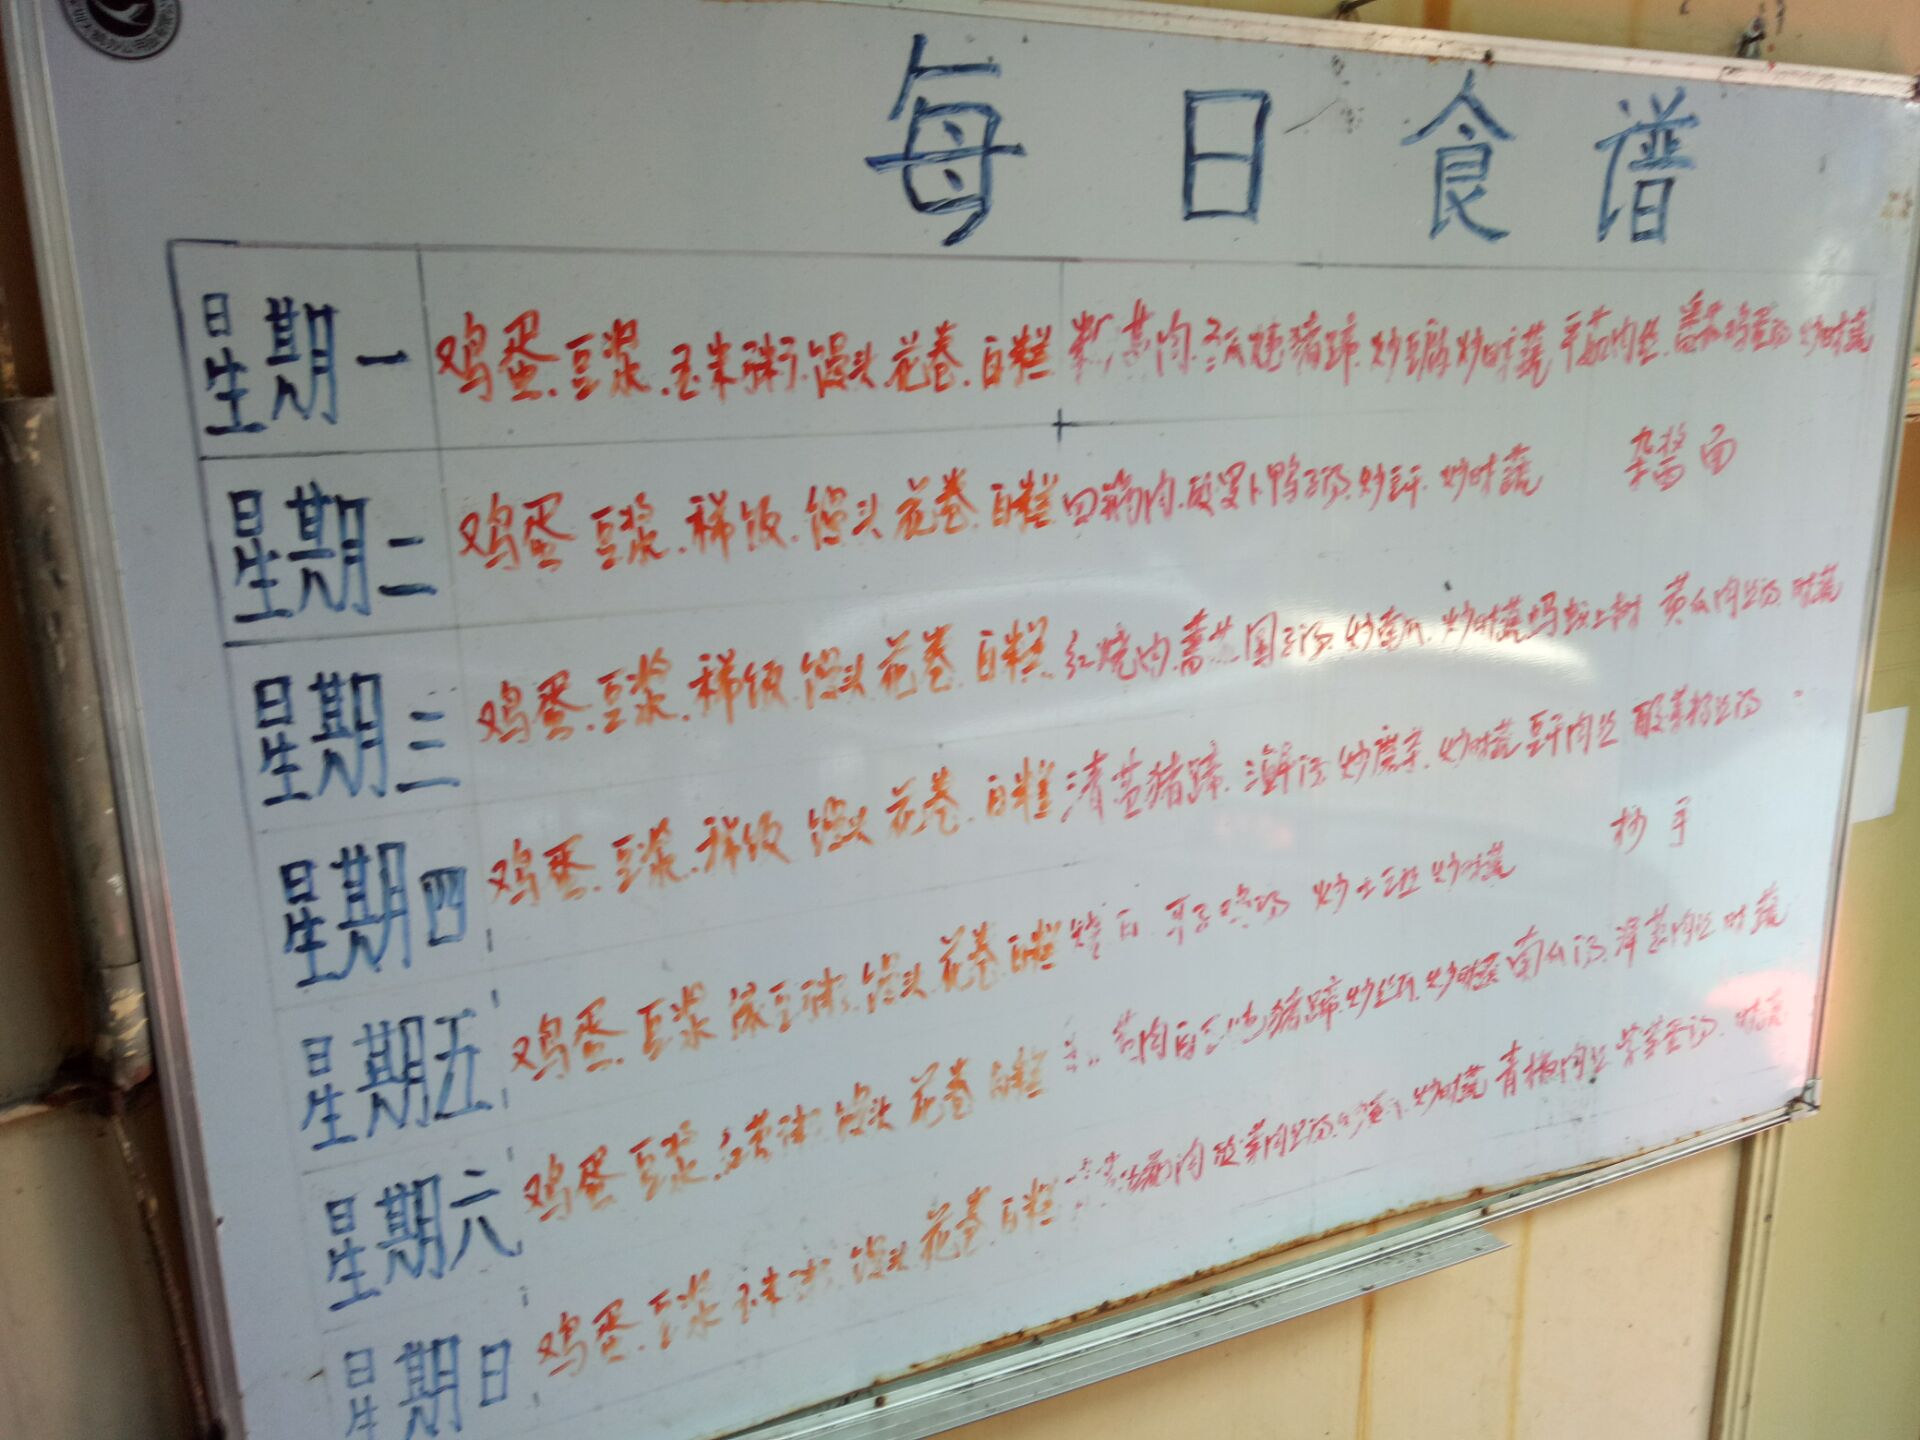 每日食谱
星期一 鸡蛋.豆浆.玉米粥.馒头.花卷.白糕 肉.炖猪蹄.炒时蔬 平菇肉丝.番茄鸡蛋汤.炒时蔬
星期二 鸡蛋 豆浆.稀饭.馒头 花卷.白糕 回锅肉.酸萝卜鸭子汤.炒豆干.炒时蔬 杂酱面
星期三 鸡蛋.豆浆.稀饭.馒头 花卷.白糕 红烧肉.圆子汤.炒南瓜.炒时蔬 蚂蚁上树 黄瓜肉丝汤.时蔬
星期四 鸡蛋.豆浆.稀饭 馒头 花卷.白糕 猪蹄.海鲜汤.炒魔芋.炒时蔬 豆干肉丝 酸菜粉丝汤
星期五 鸡蛋.豆浆 绿豆粥.馒头.花卷.白糕 烧白 炒土豆丝 炒时蔬 抄手
星期六 鸡蛋 豆浆 粥 馒头 花卷 白糕 肉 猪蹄.炒时蔬 南瓜汤.洋葱肉丝 时蔬
星期日 鸡蛋.豆浆 玉米粥.馒头 花卷.白糕 肉 酸菜肉丝汤 炒时蔬 青椒肉丝 紫菜蛋汤 时蔬